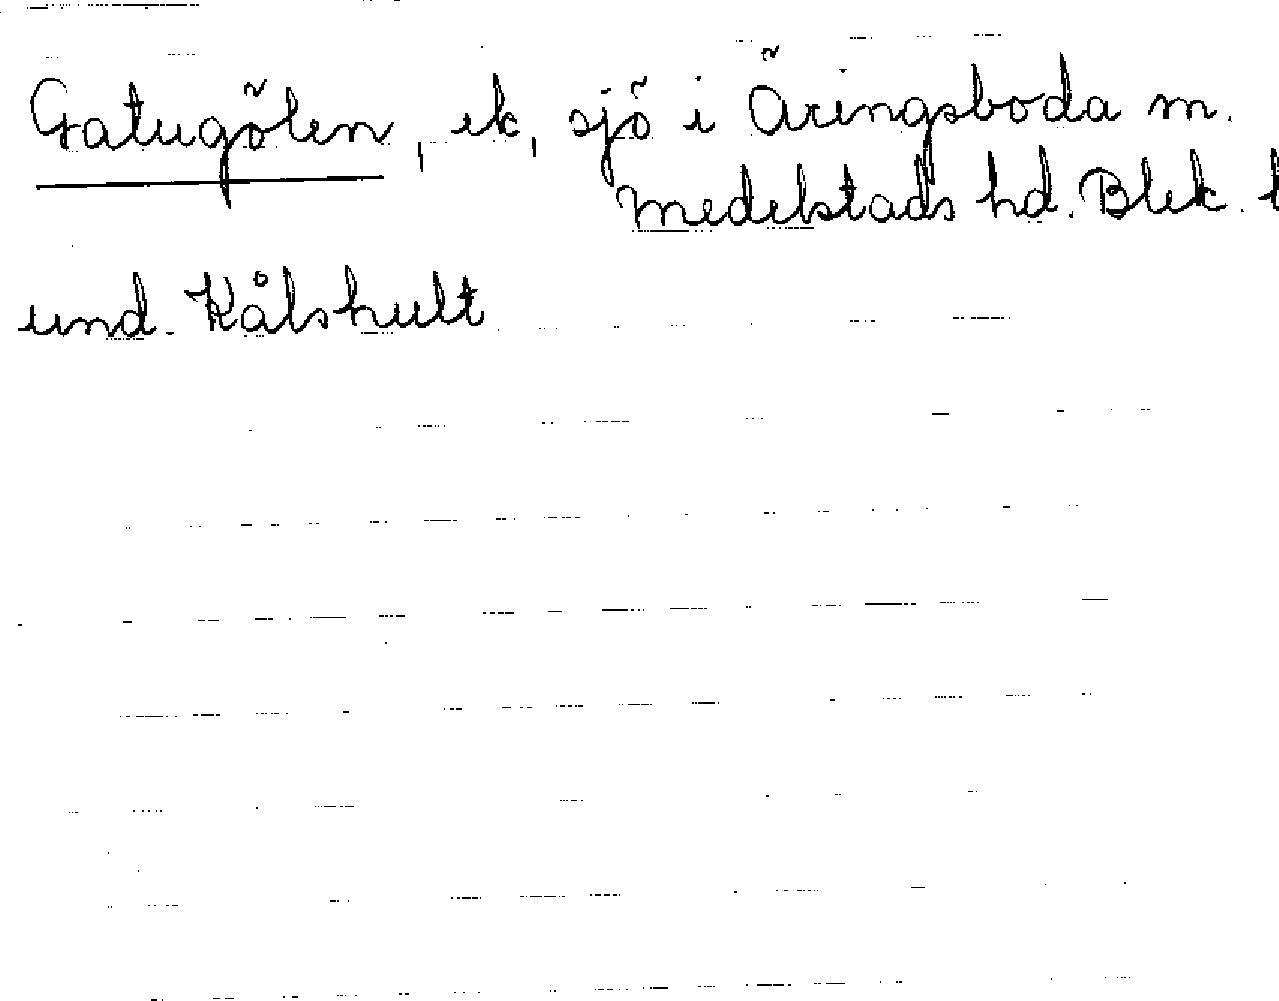 Gatugölen, ek, sjö i Äringsboda m.
Medelstads hd. Blek. l
und. Kålshult